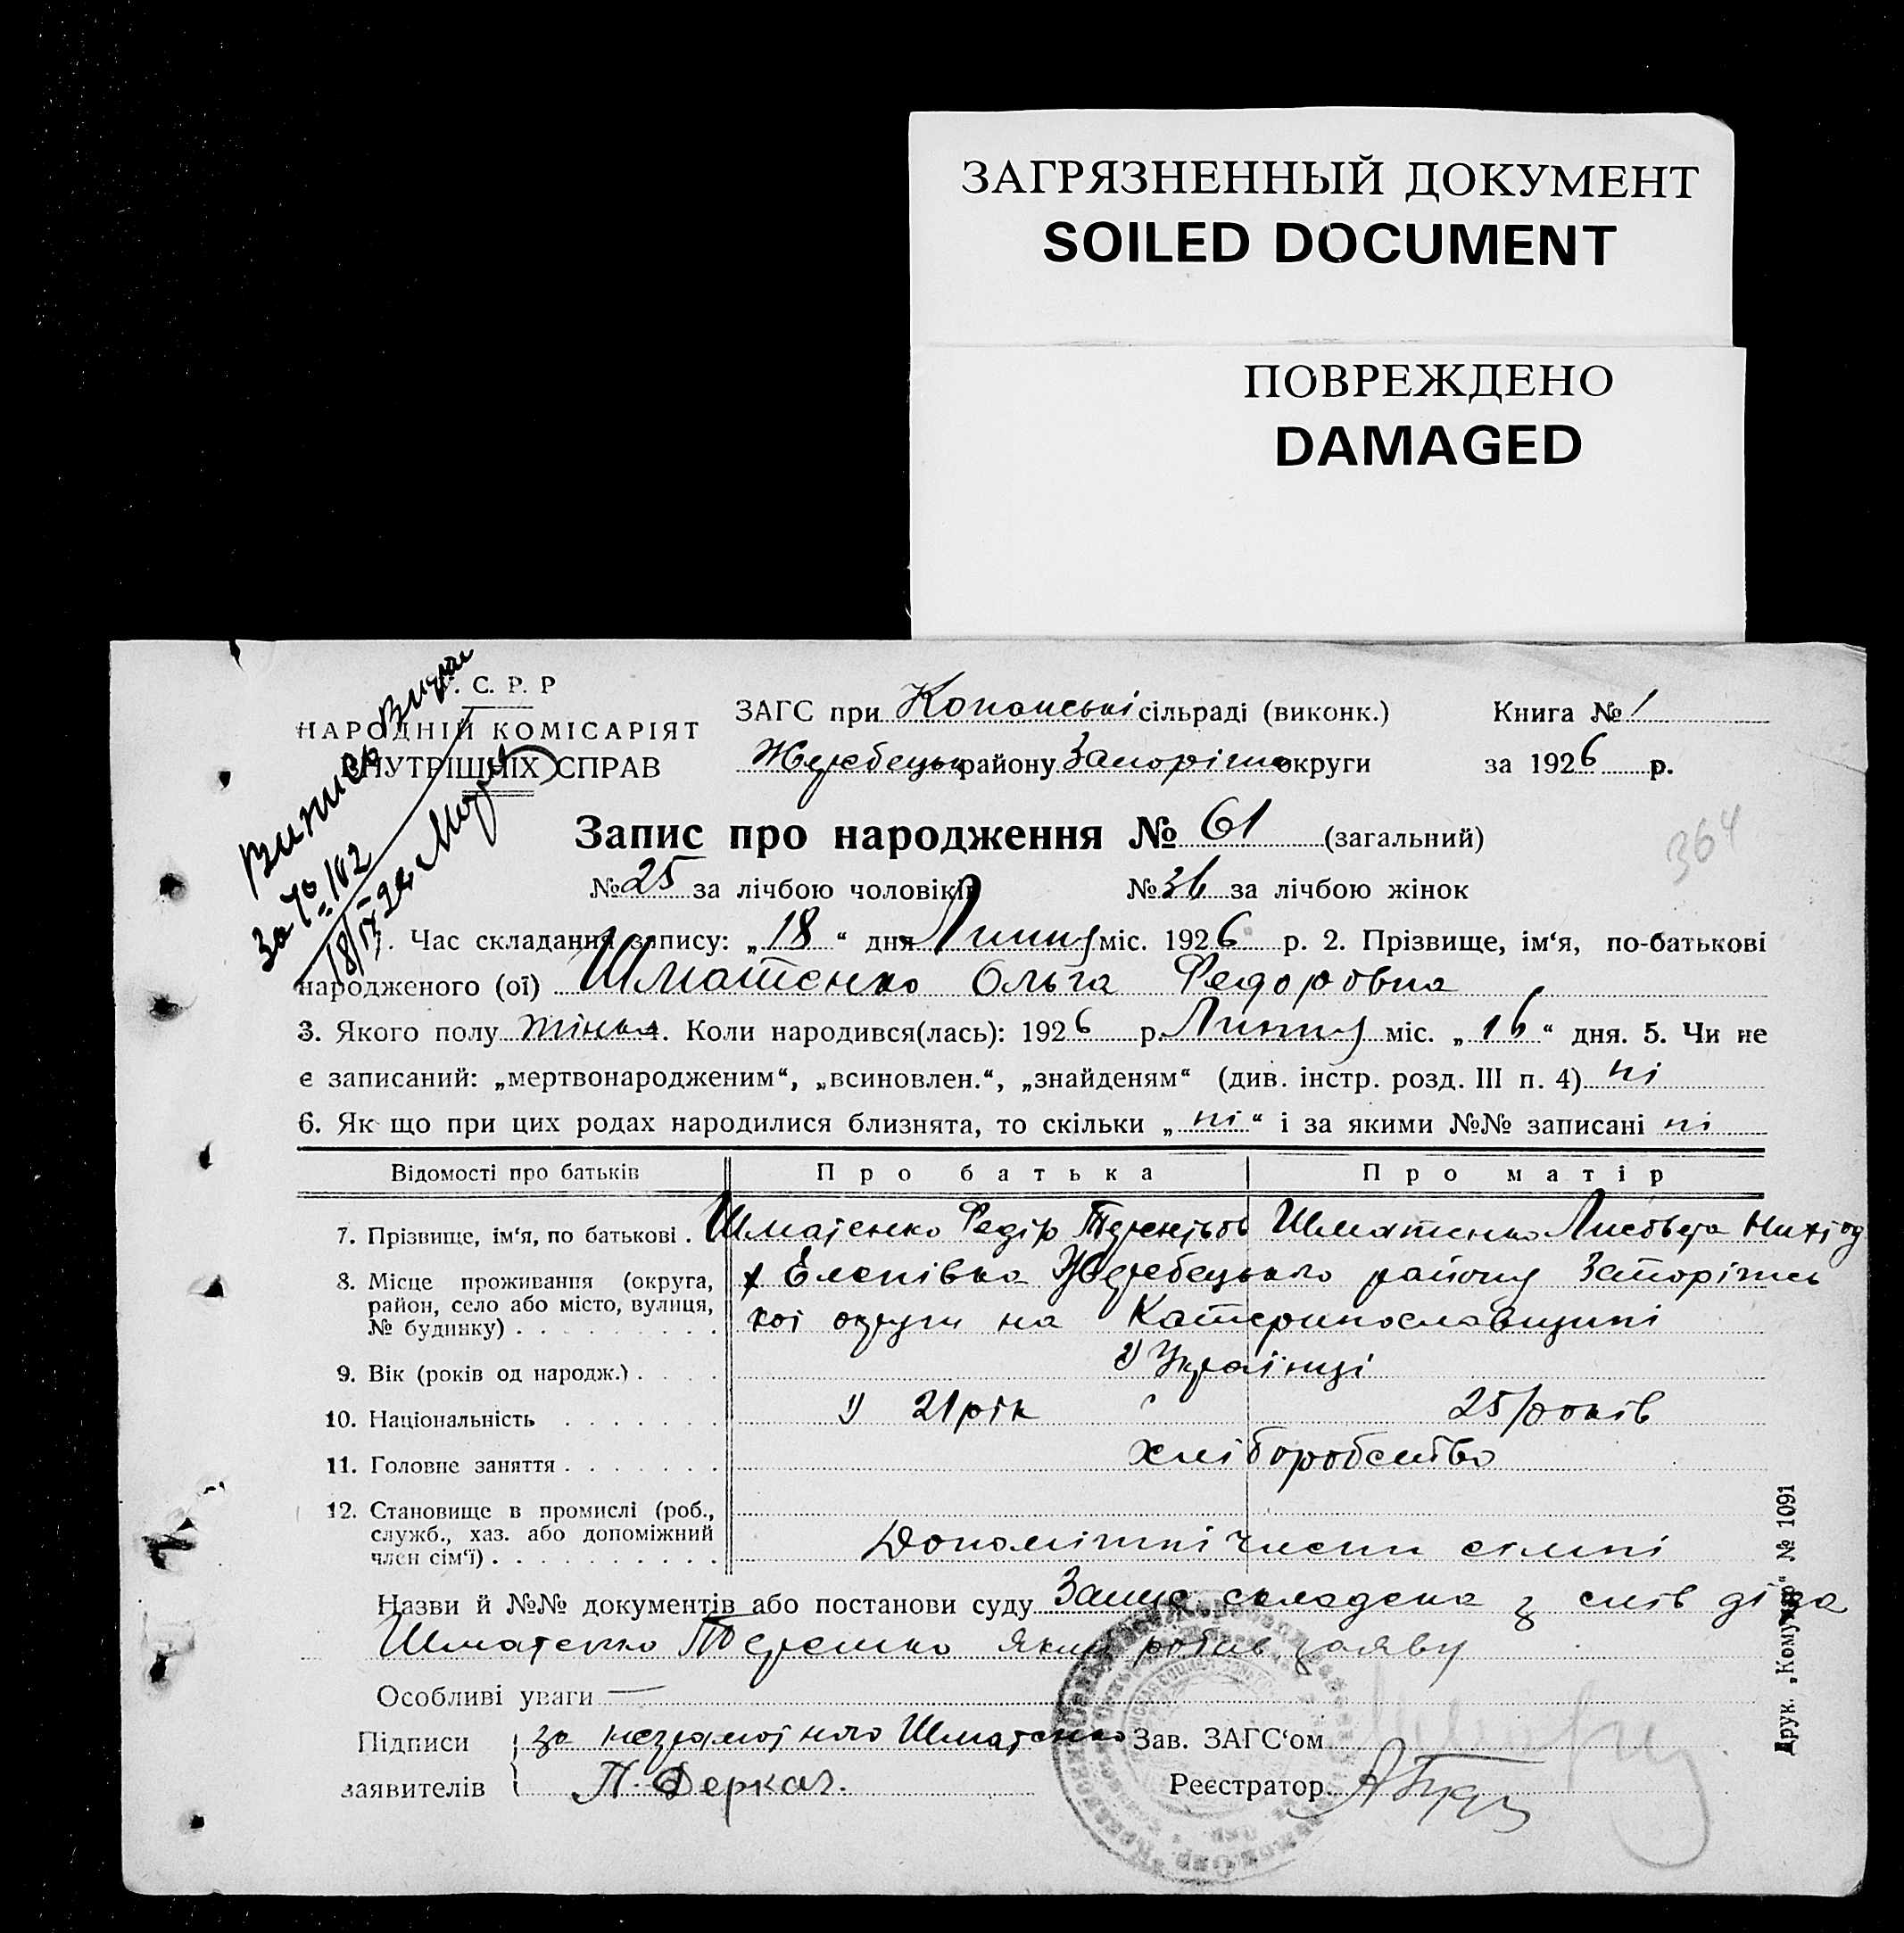 ЗАГРЯЗНЕННЫЙ ДОКУМЕНТ
SOILED DOCUMENT
ПОВРЕЖДЕНО
DAMAGED
. С. Р. Р
НАРОДНІЙ КОМІСАРІЯТ
ВНУТРІШНІХ СПРАВ
Випись
За № 102
ЗАГС при Копанські сільраді (виконк.) Книга № 1
Жеребецьк району Запоріжс округи за 1926 р.
Запис про народження № 61 (загальний)
364
№ 25 за лічбою чоловіків № 36 за лічбою жінок
1. Час складання запису: „18“ дня Липня міс. 1926 р. 2. Прізвище, ім‘я, по-батькові
народженого (ої) Шматенко Ольга Федоровна
3. Якого полу жіньк 4. Коли народився(лась): 1926 р. Липня міс. „16“ дня. 5. Чи не
є записаний: „мертвонародженим“, „всиновлен.“, „знайденям“ (див. інстр. розд. III п. 4) ні
6. Як що при цих родах народилися близнята, то скільки „ні“ і за якими №№ записані ні
Відомості про батьків Про батька Про матір
7. Прізвище, ім‘я, по батькові . Шматенко Федір Терентьов Шматенко Лисавета
8. Місце проживання (округа, район, село або місто, вулиця, № будинку) х Еленівка Жеребецького району Запоріжсь
кої округи на Катеринославщині
9. Вік (років од народж.) 2) Українці
10. Національність 1) 21 рік 25 років
11. Головне заняття хліборобство
12. Становище в промислі (роб., служб., хаз. або допоміжний член сім‘ї) Допоміжні члени сімні
Назви й №№ документів або постанови суду Запис складена з слів діда
Шматенко Терешко який робив заяву
Особливі уваги —
Підписи за неграмотного Шматенко Зав. ЗАГС‘ом
заявителів П. Деркач. Реєстратор
Друк. „Комунар“ № 1091